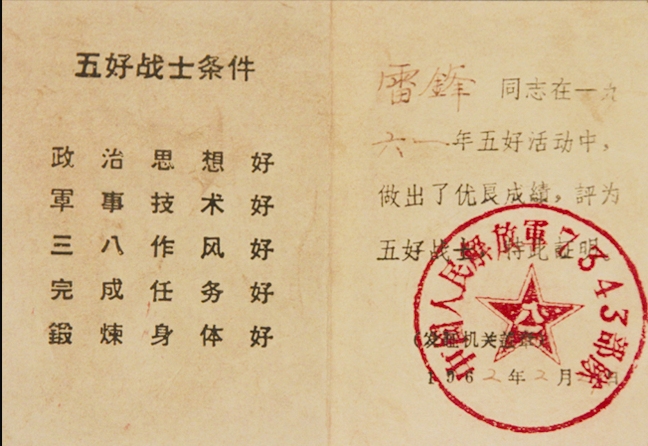 五好战士条件
政治思想好
軍事技术好
三八作风好
完成任务好
鍛煉身体好
雷鋒 同志在一九
六一年五好活动中，
做出了优良成績，評为
五好战士，特此証明。
(发証机关盖章)
1962年2月 日
中国人民解放軍7343部隊
八一